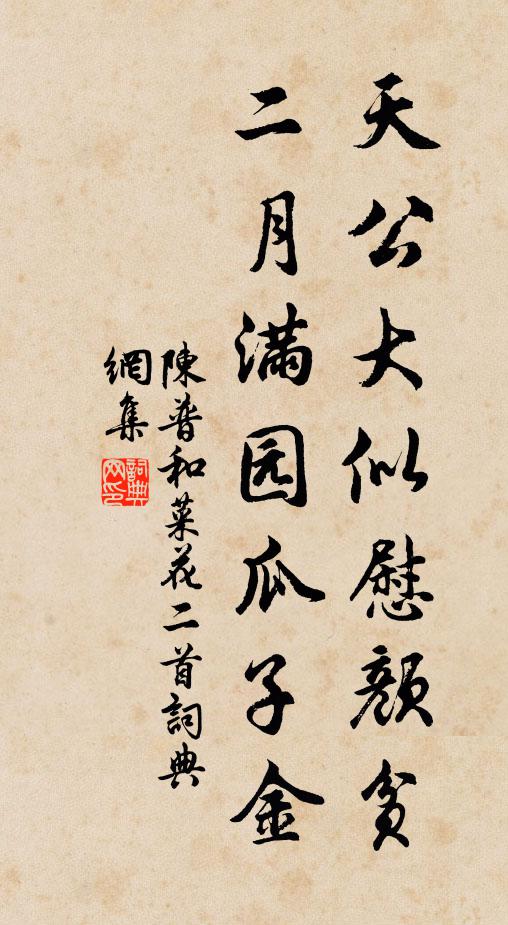 天公大似慰颜貧
二月满园瓜子金
陳普和菜花二首詞典
網集
詞典网印